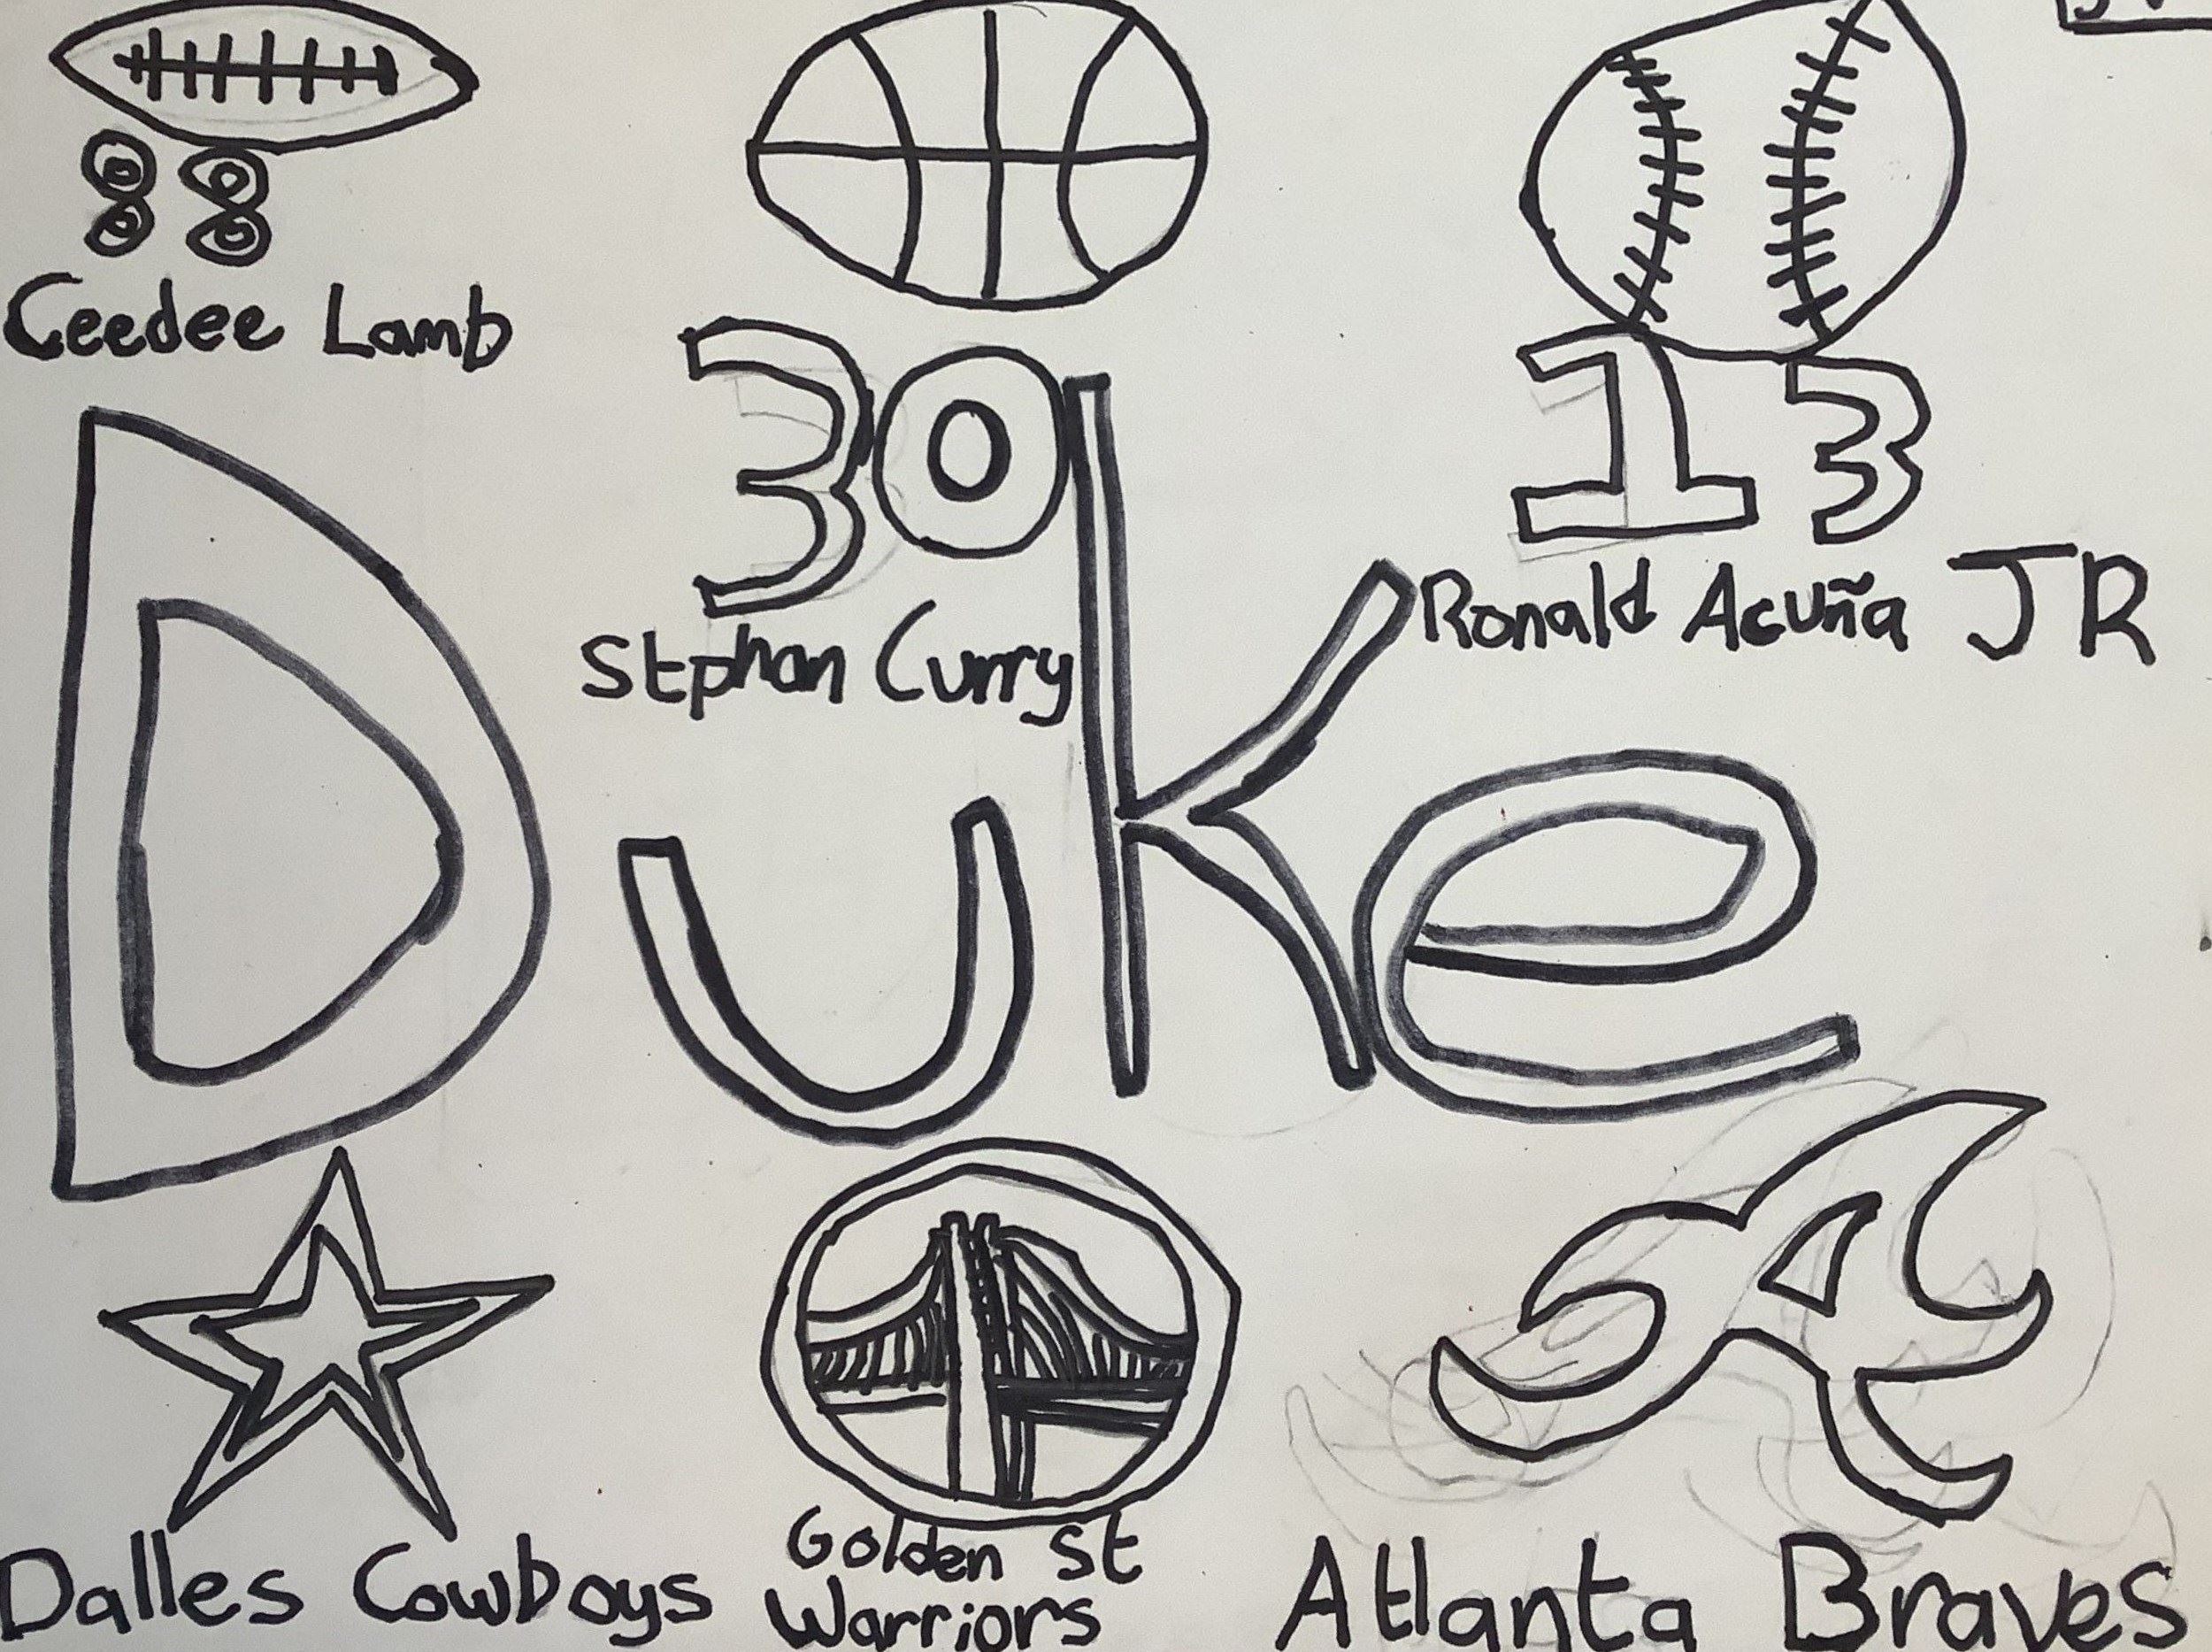 88
Ceedee Lamb
30
Stphan Curry
13
Ronald Acuña JR
Duke
A
Dalles Cowboys
Golden St
Warriors
Atlanta Braves